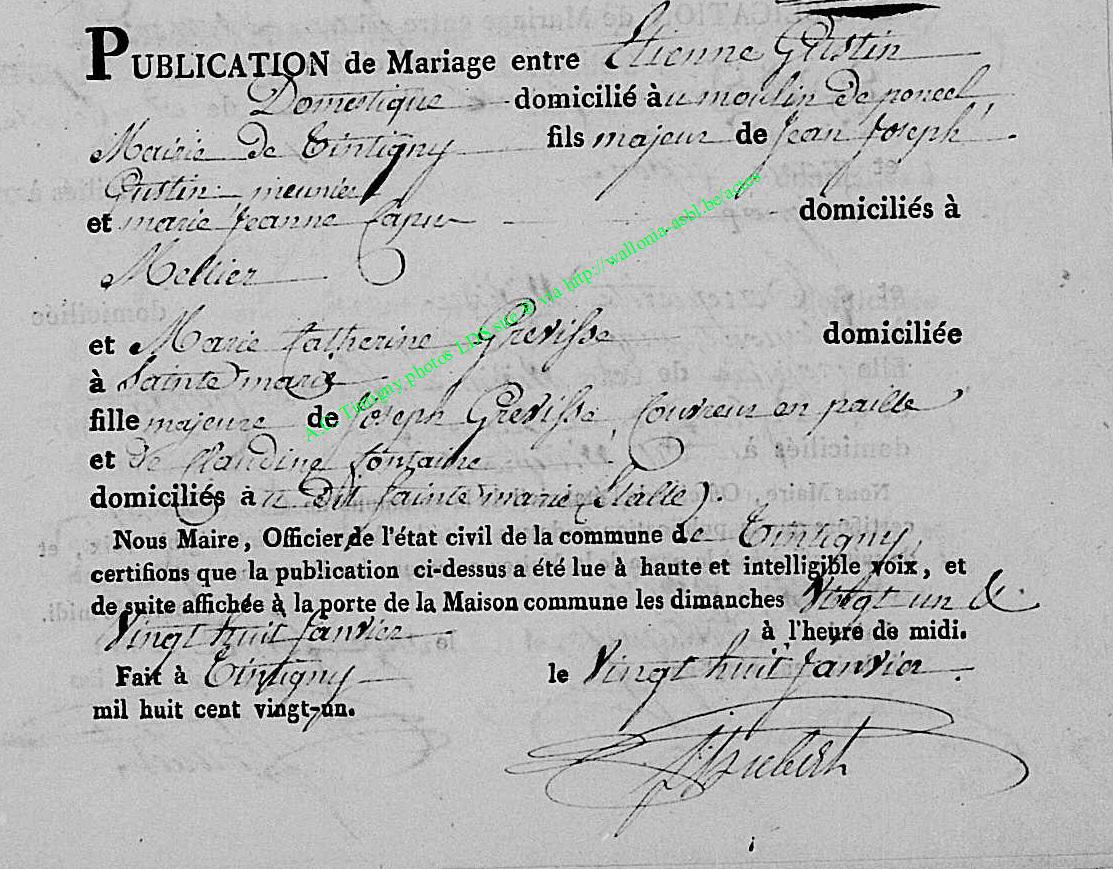 PUBLICATION de Mariage entre Etienne Gustin
Domestique domicilié à u moulin de poncel
Mairie de Tintigny fils majeur de Jean Joseph
Gustin meunier
et marie Jeanne domiciliés à
Mellier
et Marie Catherine Grevisse domiciliée
à Sainte marie
fille majeure de Joseph Grevisse, Couvreur en paille
et de Claudine fontaine
domiciliés à u Dit Sainte marie (Etalle).
Nous Maire, Officier de l'état civil de la commune de Tintigny
certifions que la publication ci-dessus a été lue à haute et intelligible voix, et
de suite affichée à la porte de la Maison commune les dimanches Vingt un &
Vingt huit Janvier à l'heure de midi.
Fait à Tintigny le Vingt huit Janvier
mil huit cent vingt-un.
Hubert
A.C. Tintigny photos LDS site @ via http://wallonia-asbl.be/actes